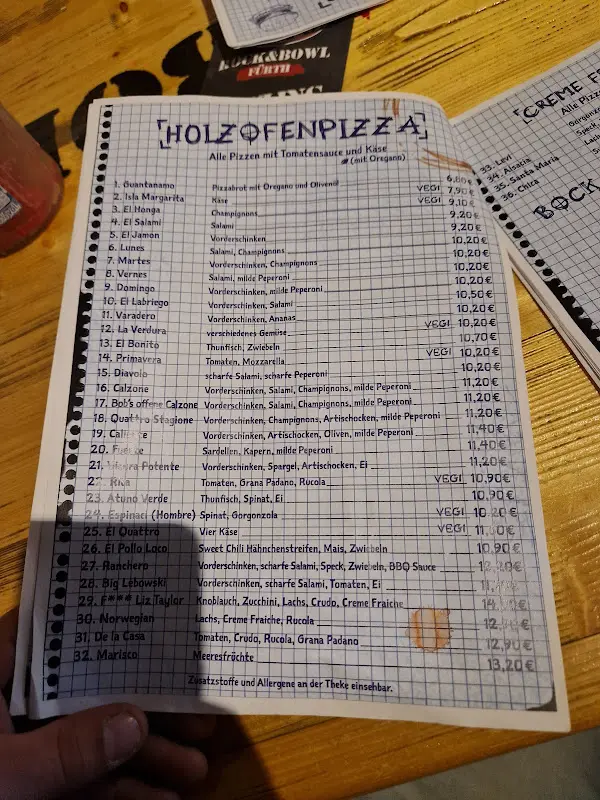 ROCK&BOWL
FÜRTH
[HOLZOFENPIZZA]
Alle Pizzen mit Tomatensauce und Käse
(mit Oregano)
1. Guantanamo Pizzabrot mit Oregano und Olivenöl 6,80€
2. Isla Margarita Käse VEGI 7,90€
3. El Honga Champignons VEGI 9,10€
4. El Salami Salami 9,20€
5. El Jamon Vorderschinken 9,20€
6. Lunes Salami, Champignons 10,20€
7. Martes Vorderschinken, Champignons 10,20€
8. Vernes Salami, milde Peperoni 10,20€
9. Domingo Vorderschinken, milde Peperoni 10,20€
10. El Labriego Vorderschinken, Salami 10,50€
11. Varadero Vorderschinken, Ananas 10,20€
12. La Verdura verschiedenes Gemüse VEGI 10,20€
13. El Bonito Thunfisch, Zwiebeln 10,70€
14. Primavera Tomaten, Mozzarella VEGI 10,20€
15. Diavolo scharfe Salami, scharfe Peperoni 10,20€
16. Calzone Vorderschinken, Salami, Champignons, milde Peperoni 11,20€
17. Bob's offene Calzone Vorderschinken, Salami, Champignons, milde Peperoni 11,20€
18. Quattro Stagione Vorderschinken, Champignons, Artischocken, milde Peperoni 11,20€
19. Vorderschinken, Artischocken, Oliven, milde Peperoni 11,40€
20. Sardellen, Kapern, milde Peperoni 11,40€
21. Potente Vorderschinken, Spargel, Artischocken, Ei 11,20€
22. Rita Tomaten, Grana Padano, Rucola VEGI 10,90€
23. Atuno Verde Thunfisch, Spinat, Ei 10,90€
24. Espinaci (Hombre) Spinat, Gorgonzola VEGI 10,20€
25. El Quattro Vier Käse VEGI
26. El Pollo Loco Sweet Chili Hähnchenstreifen, Mais, Zwiebeln 10,90€
27. Ranchero Vorderschinken, scharfe Salami, Speck, Zwiebeln, BBQ Sauce
28. Big Lebowski Vorderschinken, scharfe Salami, Tomaten, Ei
29. F*** Liz Taylor Knoblauch, Zucchini, Lachs, Crudo, Creme Fraiche
30. Norwegian Lachs, Creme Fraiche, Rucola
31. De la Casa Tomaten, Crudo, Rucola, Grana Padano 12,90€
32. Marisco Meeresfrüchte 13,20€
Zusatzstoffe und Allergene an der Theke einsehbar.
[CREME FR
Alle Pizze
Gorgonz
Speck,
Lach
33. Levi
34. Alsacia
35. Santa Maria
36. Chica
BOCK